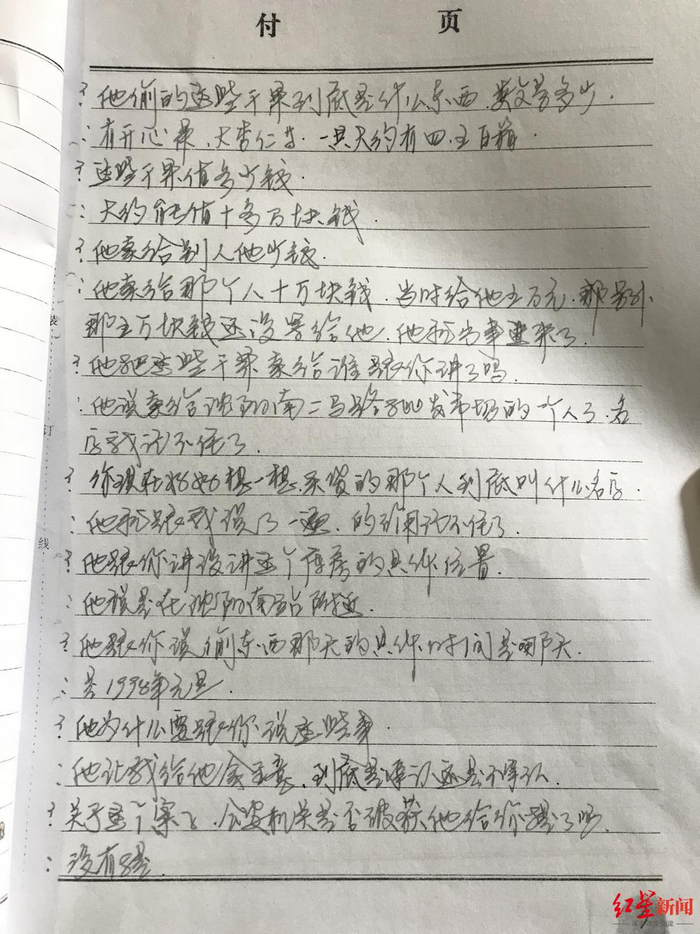 付 页
? 他偷的这些干果到底是什么东西,数量多少.
: 有开心果、大杏仁等.一共大约有四、五百箱
? 这些干果值多少钱
: 大约能值十多万块钱.
? 他卖给别人他少钱.
: 他卖给那个人十万块钱.当时给他五万元.那另外
那五万块钱还没有给他.他就出事进来了
? 他把这些干果卖给谁跟你讲了吗.
: 他说卖给沈阳南二马路批发市场的一个人了.名
字我记不住了
? 你现在好好想一想,买货的那个人到底叫什么名字.
: 他就跟我说了一遍.的确记不住了.
? 他跟你讲没讲这个库房的具体位置
: 他说是在沈阳南站附近
? 他跟你说偷东西那天的具体时间是哪天.
: 是1998年元旦.
? 他为什么要跟你说这些事
: 他让我给他拿主意、到底是承认还是不承认.
? 关于这个案子,公安机关是否破获他给你提了吗.
: 没有提.
装
订
线
红星新闻